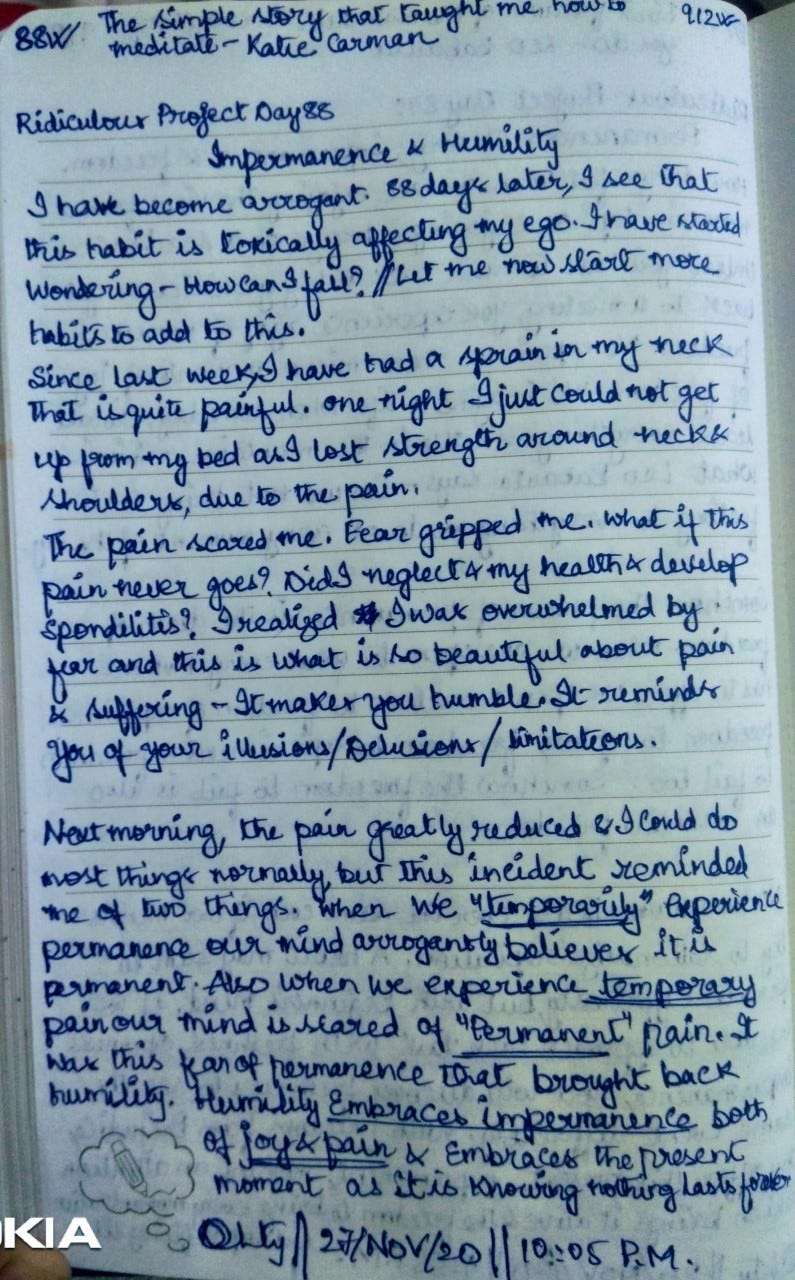 88W/ The simple story that taught me how to
meditate - Katie Carman
Ridiculous Project Day 88
Impermanence & Humility
I have become arrogant. 88 days later, I see that
this habit is toxically affecting my ego. I have started
wondering - How can I fail? // Let me now start more
habits to add to this.
Since last week, I have had a sprain in my neck
that is quite painful. one night I just could not get
up from my bed as I lost strength around neck &
shoulders, due to the pain.
The pain scared me. Fear gripped me. What if this
pain never goes? Did I neglect my health & develop
spondilitis? I realized I was overwhelmed by
fear and this is what is so beautiful about pain
& suffering - It makes you humble. It reminds
you of your illusions/Delusions/limitations.
Next morning, the pain greatly reduced & I could do
most things normally, but this incident reminded
me of two things. When we "temporarily" experience
permanence our mind arrogantly believes it is
permanent. Also when we experience temporary
pain our mind is scared of "Permanent" pain. It
was this fear of permanence that brought back
humility. Humility Embraces impermanence both
of joy & pain & Embraces the present
moment as it is knowing nothing lasts forever
27/NOV/20 || 10:05 P.M.
KIA